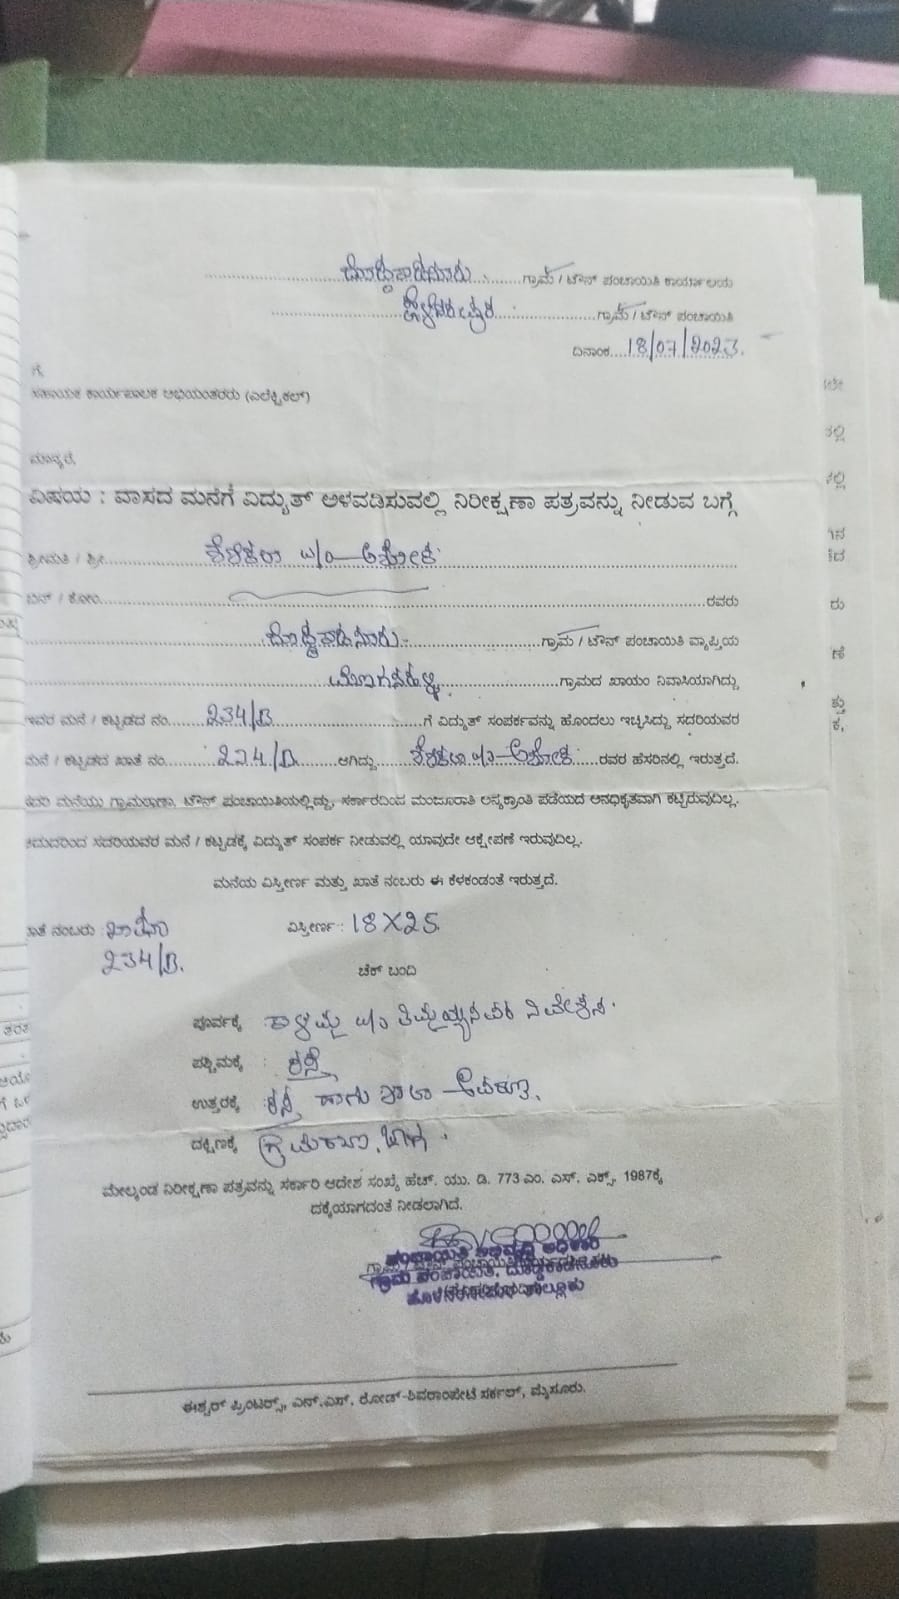 ದೊಡ್ಡಕಾಡನೂರು ಗ್ರಾಮ / ಟೌನ್ ಪಂಚಾಯಿತಿ ಕಾರ್ಯಾಲಯ
ಗ್ರಾಮ / ಟೌನ್ ಪಂಚಾಯಿತಿ
ದಿನಾಂಕ 18/07/2023
ಗೆ,
ಸಹಾಯಕ ಕಾರ್ಯಪಾಲಕ ಅಭಿಯಂತರರು (ಎಲೆಕ್ಟ್ರಿಕಲ್)
ಮಾನ್ಯರೆ,
ವಿಷಯ : ವಾಸದ ಮನೆಗೆ ವಿದ್ಯುತ್ ಅಳವಡಿಸುವಲ್ಲಿ ನಿರೀಕ್ಷಣಾ ಪತ್ರವನ್ನು ನೀಡುವ ಬಗ್ಗೆ
ಶ್ರೀಮತಿ / ಶ್ರೀ ಶಶಿಕಲಾ w/o ಅಶೋಕ
ಬಿನ್ / ಕೋಂ ರವರು
ದೊಡ್ಡಕಾಡನೂರು ಗ್ರಾಮ / ಟೌನ್ ಪಂಚಾಯಿತಿ ವ್ಯಾಪ್ತಿಯ
ಗ್ರಾಮದ ಖಾಯಂ ನಿವಾಸಿಯಾಗಿದ್ದು
ಇವರ ಮನೆ / ಕಟ್ಟಡದ ನಂ. 234/B ಗೆ ವಿದ್ಯುತ್ ಸಂಪರ್ಕವನ್ನು ಹೊಂದಲು ಇಚ್ಛಿಸಿದ್ದು ಸದರಿಯವರ
ಮನೆ / ಕಟ್ಟಡದ ಖಾತೆ ನಂ. 234/B ಆಗಿದ್ದು ಶಶಿಕಲಾ w/o ಅಶೋಕ ರವರ ಹೆಸರಿನಲ್ಲಿ ಇರುತ್ತದೆ.
ಸದರಿ ಮನೆಯು ಗ್ರಾಮಠಾಣಾ, ಟೌನ್ ಪಂಚಾಯಿತಿಯಲ್ಲಿದ್ದು, ಸರ್ಕಾರದಿಂದ ಮಂಜೂರಾತಿ ಅನ್ಯಕ್ರಾಂತಿ ಪಡೆಯದ ಅನಧಿಕೃತವಾಗಿ ಕಟ್ಟಿರುವುದಿಲ್ಲ.
ಆದುದರಿಂದ ಸದರಿಯವರ ಮನೆ / ಕಟ್ಟಡಕ್ಕೆ ವಿದ್ಯುತ್ ಸಂಪರ್ಕ ನೀಡುವಲ್ಲಿ ಯಾವುದೇ ಆಕ್ಷೇಪಣೆ ಇರುವುದಿಲ್ಲ.
ಮನೆಯ ವಿಸ್ತೀರ್ಣ ಮತ್ತು ಖಾತೆ ನಂಬರು ಈ ಕೆಳಕಂಡಂತೆ ಇರುತ್ತದೆ.
ಖಾತೆ ನಂಬರು : ವಿಸ್ತೀರ್ಣ : 18X25
234/B.
ಚೆಕ್ ಬಂದಿ
ಪೂರ್ವಕ್ಕೆ ಕಾಳಮ್ಮ w/o ತಿಮ್ಮಯ್ಯನವರ ನಿವೇಶನ.
ಪಶ್ಚಿಮಕ್ಕೆ : ರಸ್ತೆ
ಉತ್ತರಕ್ಕೆ : ರಸ್ತೆ ಹಾಗು
ದಕ್ಷಿಣಕ್ಕೆ
ಮೇಲ್ಕಂಡ ನಿರೀಕ್ಷಣಾ ಪತ್ರವನ್ನು ಸರ್ಕಾರಿ ಆದೇಶ ಸಂಖ್ಯೆ ಹೆಚ್. ಯು. ಡಿ. 773 ಎಂ. ಎಸ್. ಎಕ್ಸ್, 1987ಕ್ಕೆ
ದಕ್ಕೆಯಾಗದಂತೆ ನೀಡಲಾಗಿದೆ.
ಪಂಚಾಯಿತಿ ಅಭಿವೃದ್ಧಿ ಅಧಿಕಾರಿ
ಗ್ರಾಮ ಪಂಚಾಯಿತಿ, ದೊಡ್ಡಕಾಡನೂರು
ಹೊಳೆನರಸೀಪುರ ತಾಲ್ಲೂಕು
ಈಶ್ವರ್ ಪ್ರಿಂಟರ್ಸ್, ಎನ್.ಎಸ್. ರೋಡ್-ಶಿವರಾಂಪೇಟೆ ಸರ್ಕಲ್, ಮೈಸೂರು.